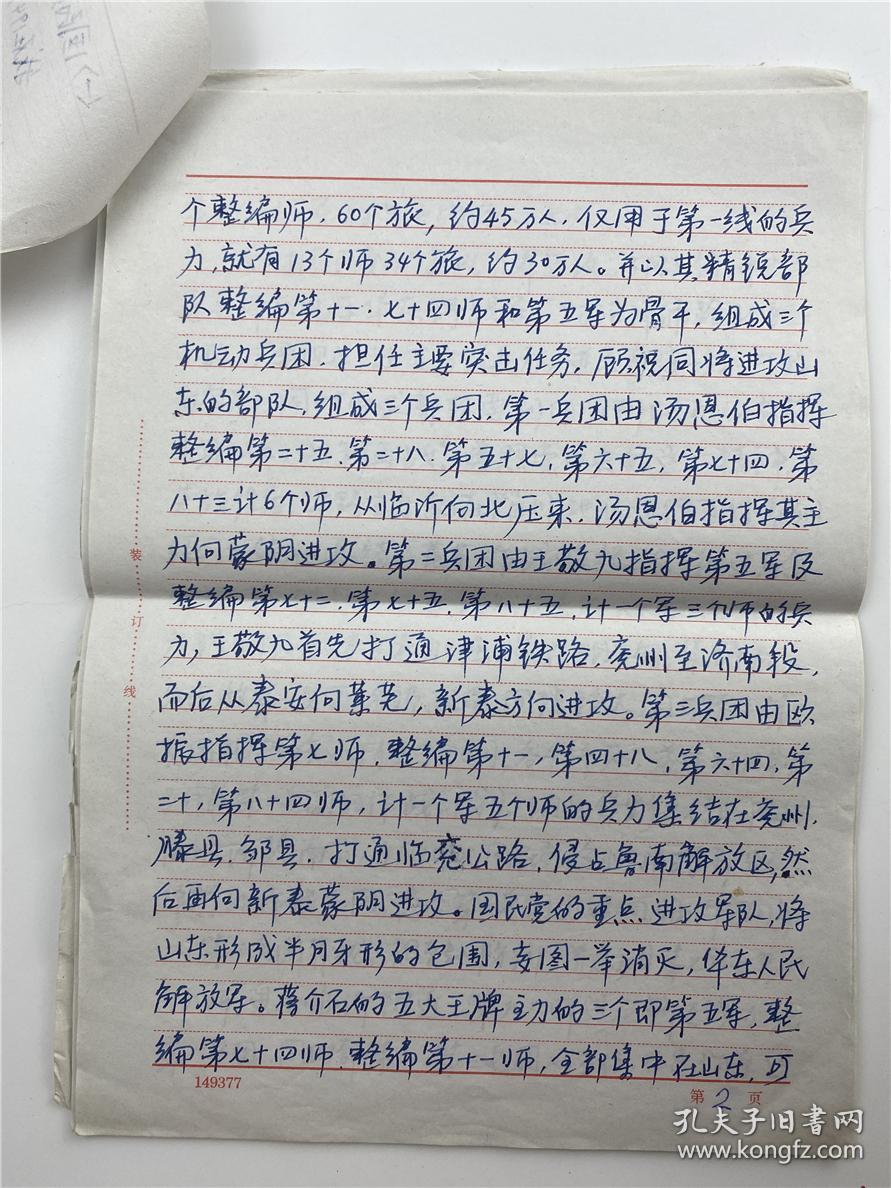 个整编师，60个旅，约45万人，仅用于第一线的兵
力，就有13个师34个旅，约30万人。并以其精锐部
队整编第十一、七十四师和第五军为骨干，组成三个
机动兵团，担任主要突击任务，顾祝同将进攻山
东的部队，组成三个兵团，第一兵团由汤恩伯指挥
整编第二十五、第二十八、第五十七，第六十五，第七十四，第
八十三计6个师，从临沂向北压来，汤恩伯指挥其主
力向蒙阴进攻。第二兵团由王敬九指挥第五军及
整编第七十二，第七十五，第八十五，计一个军三个师的兵
力，王敬九首先打通津浦铁路，兖州至济南段，
而后从泰安向莱芜，新泰方向进攻。第三兵团由欧
振指挥第七师，整编第十一，第四十八，第六十四，第
二十，第八十四师，计一个军五个师的兵力集结在兖州，
滕县，邹县，打通临兖公路，侵占鲁南解放区，然
后再向新泰蒙阴进攻。国民党的重点进攻军队，将
山东形成半月牙形的包围，妄图一举消灭，华东人民
解放军。蒋介石的五大王牌主力的三个即第五军，整
编第七十四师，整编第十一师，全部集中在山东，可
装订线
149377
第2页
孔夫子旧书网
www.kongfz.com